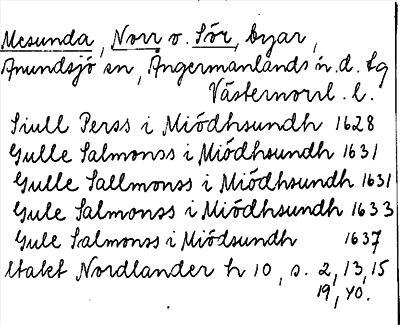 Mesunda, Norr o. Sör, byar,
Anundsjö sn, Ångermanlands n. d. lg
Västernorrl. l.
Siull Perss i Miödhsundh 1628
Gulle Salmonss i Miödhsundh 1631
Gulle Sallmonss i Miödhsundh 1631
Gule Salmonss i Miödhsundh 1633
Gule Salmonss i Miödsundh 1637
Utakt Nordlander h 10, s. 2, 13, 15
19, 40.